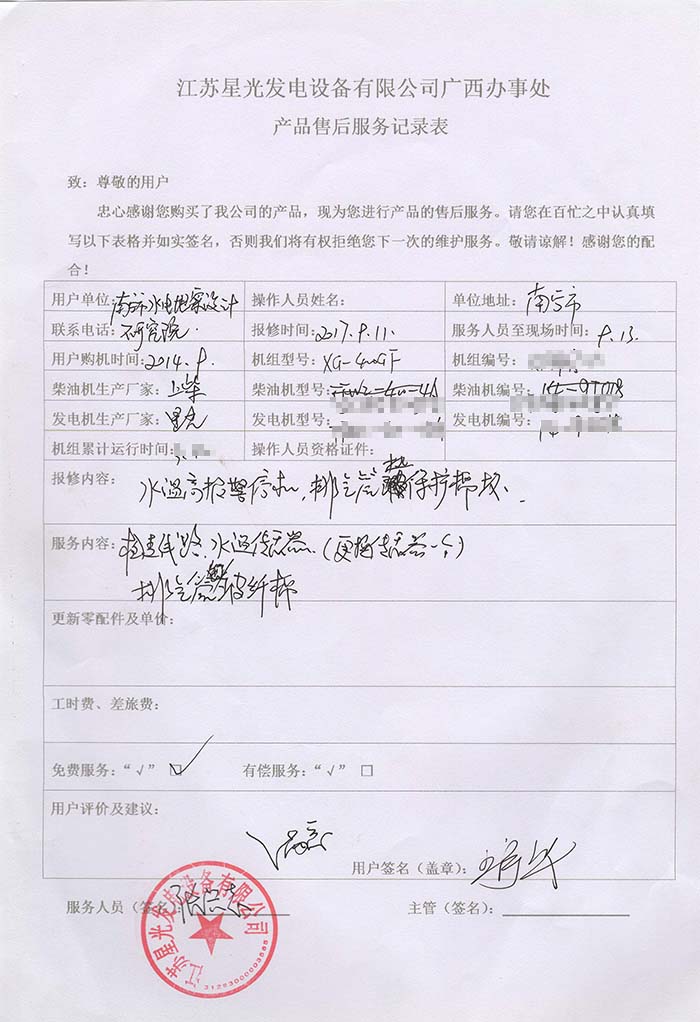 江苏星光发电设备有限公司广西办事处
产品售后服务记录表
致：尊敬的用户
忠心感谢您购买了我公司的产品，现为您进行产品的售后服务。请您在百忙之中认真填
写以下表格并如实签名，否则我们将有权拒绝您下一次的维护服务。敬请谅解！感谢您的配
合！
用户单位：南宁市水电地震设计 操作人员姓名： 单位地址：南宁市
联系电话：研究院. 报修时间：2017.9.11. 服务人员至现场时间：9.13.
用户购机时间：2014.9. 机组型号：XG-400GF 机组编号：
柴油机生产厂家：上柴 柴油机型号： 柴油机编号：
发电机生产厂家：星光 发电机型号： 发电机编号：
机组累计运行时间： 操作人员资格证件：
报修内容：水温高报警停机，排气管 保护棉
服务内容：检查线路、水温传感器.（更换传感器一个）
排气管 玻纤棉
更新零配件及单价：
工时费、差旅费：
免费服务：“√” ☑ 有偿服务：“√” □
用户评价及建议：
用户签名（盖章）：
服务人员（签名）： 主管（签名）：
江苏星光发电设备有限公司